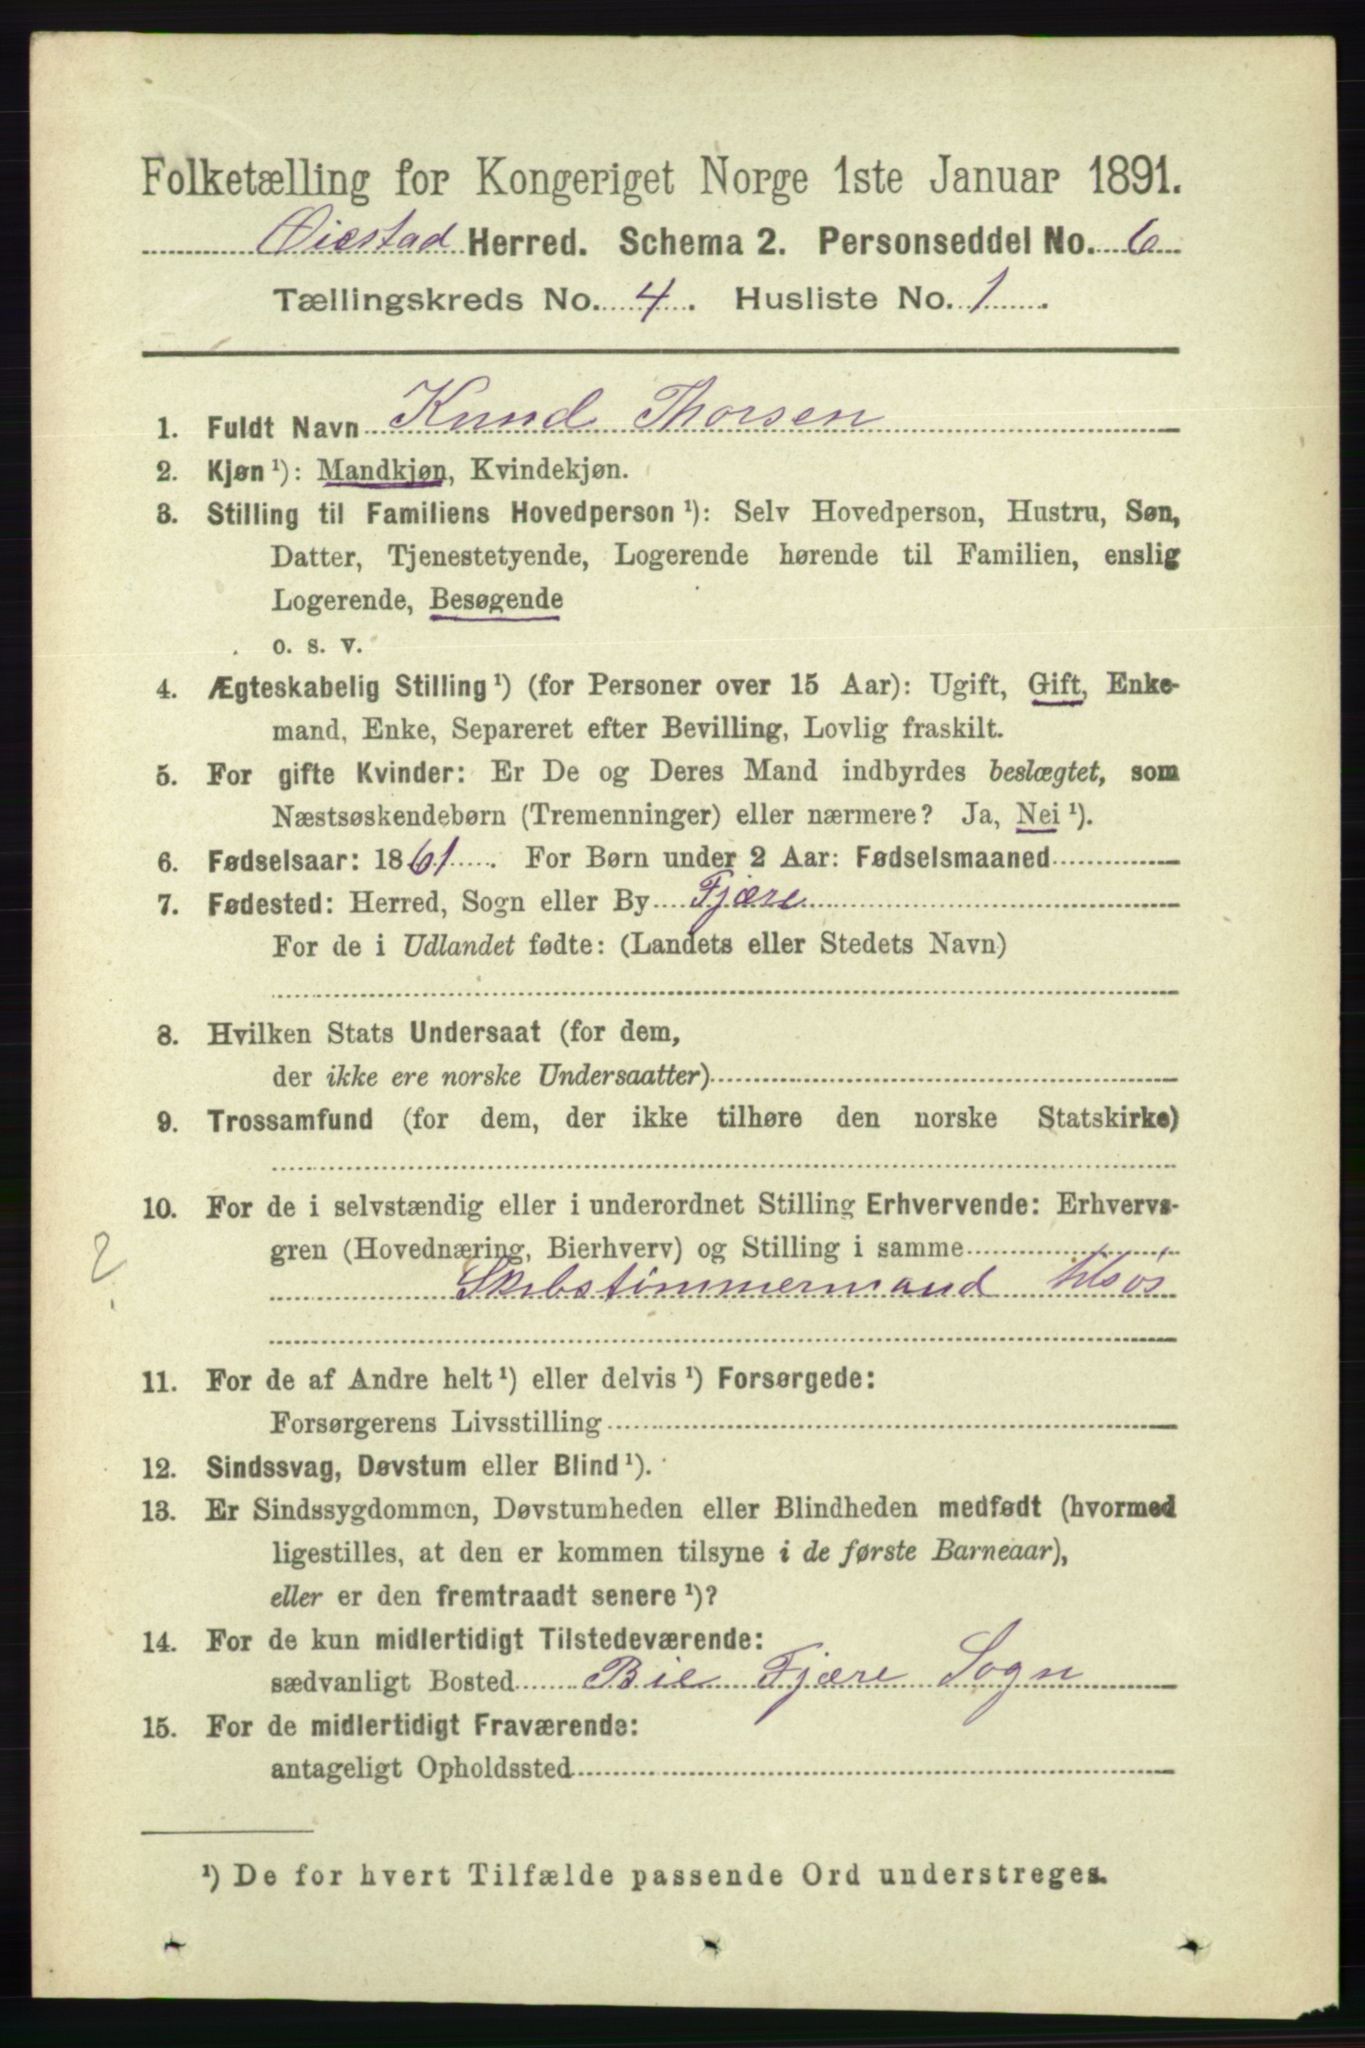 Folketælling for Kongeriget Norge 1ste Januar 1891.
Øiestad Herred. Schema 2. Personseddel No. 6
Tællingskreds No. 4. Husliste No. 1.
1. Fuldt Navn Knud Thorsen
2. Kjøn ¹): Mandkjøn, Kvindekjøn.
3. Stilling til Familiens Hovedperson ¹): Selv Hovedperson, Hustru, Søn,
Datter, Tjenestetyende, Logerende hørende til Familien, enslig
Logerende, Besøgende
o. s. v.
4. Ægteskabelig Stilling ¹) (for Personer over 15 Aar): Ugift, Gift, Enke-
mand, Enke, Separeret efter Bevilling, Lovlig fraskilt.
5. For gifte Kvinder: Er De og Deres Mand indbyrdes beslægtet, som
Næstsøskendebørn (Tremenninger) eller nærmere? Ja, Nei ¹).
6. Fødselsaar: 1861. For Børn under 2 Aar: Fødselsmaaned
7. Fødested: Herred, Sogn eller By Fjære
For de i Udlandet fødte: (Landets eller Stedets Navn)
8. Hvilken Stats Undersaat (for dem,
der ikke ere norske Undersaatter)
9. Trossamfund (for dem, der ikke tilhøre den norske Statskirke)
10. For de i selvstændig eller i underordnet Stilling Erhvervende: Erhvervs-
gren (Hovednæring, Bierhverv) og Stilling i samme
2
Skibstimmermand tilsøs
11. For de af Andre helt ¹) eller delvis ¹) Forsørgede:
Forsørgerens Livsstilling
12. Sindssvag, Døvstum eller Blind ¹).
13. Er Sindssygdommen, Døvstumheden eller Blindheden medfødt (hvormed
ligestilles, at den er kommen tilsyne i de første Barneaar),
eller er den fremtraadt senere ¹)?
14. For de kun midlertidigt Tilstedeværende:
sædvanligt Bosted Bie Fjære Sogn
15. For de midlertidigt Fraværende:
antageligt Opholdssted
¹) De for hvert Tilfælde passende Ord understreges.